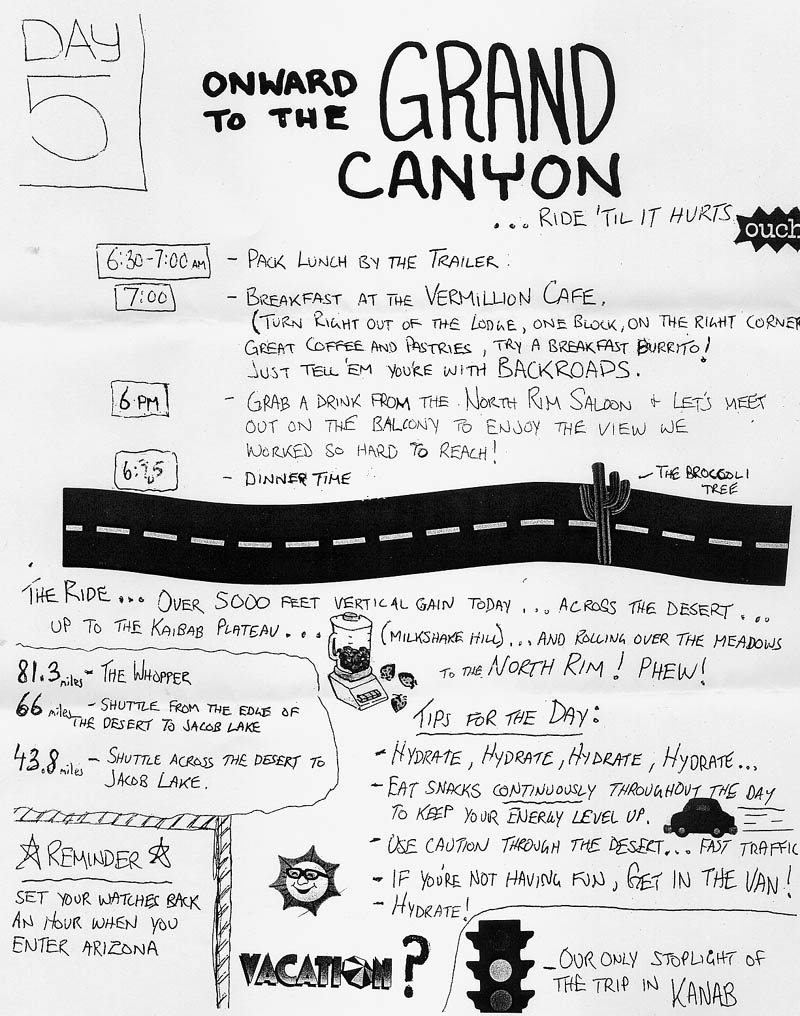 DAY
5
ONWARD
TO THE
GRAND
CANYON
... RIDE 'TIL IT HURTS
ouch
6:30-7:00 AM - PACK LUNCH BY THE TRAILER.
7:00 - BREAKFAST AT THE VERMILLION CAFE,
(TURN RIGHT OUT OF THE LODGE, ONE BLOCK, ON THE RIGHT CORNER
GREAT COFFEE AND PASTRIES, TRY A BREAKFAST BURRITO!
JUST TELL 'EM YOU'RE WITH BACKROADS.
6 PM - GRAB A DRINK FROM THE NORTH RIM SALOON + LET'S MEET
OUT ON THE BALCONY TO ENJOY THE VIEW WE
WORKED SO HARD TO REACH!
- DINNER TIME
- THE BROCCOLI
TREE
THE RIDE... OVER 5000 FEET VERTICAL GAIN TODAY... ACROSS THE DESERT...
UP TO THE KAIBAB PLATEAU... (MILKSHAKE HILL)... AND ROLLING OVER THE MEADOWS
TO THE NORTH RIM! PHEW!
81.3 miles - THE WHOPPER
66 miles - SHUTTLE FROM THE EDGE OF
THE DESERT TO JACOB LAKE
43.8 miles - SHUTTLE ACROSS THE DESERT TO
JACOB LAKE.
TIPS FOR THE DAY:
- HYDRATE, HYDRATE, HYDRATE, HYDRATE...
- EAT SNACKS CONTINUOUSLY THROUGHOUT THE DAY
TO KEEP YOUR ENERGY LEVEL UP.
- USE CAUTION THROUGH THE DESERT... FAST TRAFFIC
- IF YOU'RE NOT HAVING FUN, GET IN THE VAN!
- HYDRATE!
REMINDER
SET YOUR WATCHES BACK
AN HOUR WHEN YOU
ENTER ARIZONA
VACATION?
- OUR ONLY STOPLIGHT OF
THE TRIP IN KANAB